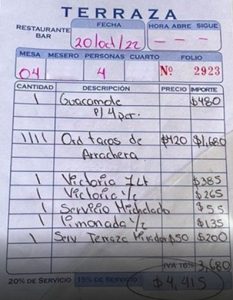 TERRAZA
RESTAURANTE BAR
FECHA
20/oct/22
HORA ABRE SIGUE
MESA MESERO PERSONAS CUARTO FOLIO
04 4 Nº 2923
CANTIDAD DESCRIPCIÓN PRECIO IMPORTE
1 Guacamole $480
P/ 4 per.
1111 Ord tacos de $420 $1,680
Arrachera
1 Victoria $385
1 Victoria 1/2 $265
1 Servicio Michelado $55
1 limonada 1/2 $135
1 Serv Terraza Mirador $50 $200
IVA 16% 3,680
20% DE SERVICIO 15% DE SERVICIO $4,415